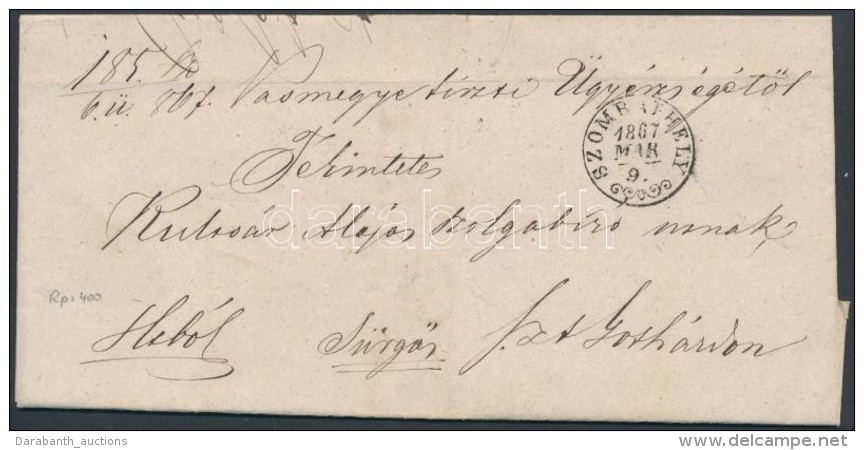 185.
6. ü. 867. Vasmegye tiszti Ügyészségétől
SZOMBATHELY
1867
MAR
9.
Tekintetes
darabanth
Kulcsár Alajos szolgabíró urnak
Rp: 400
Hból Sürgős Szt Gothárdon
Darabanth_auctions
www.delcampe.net